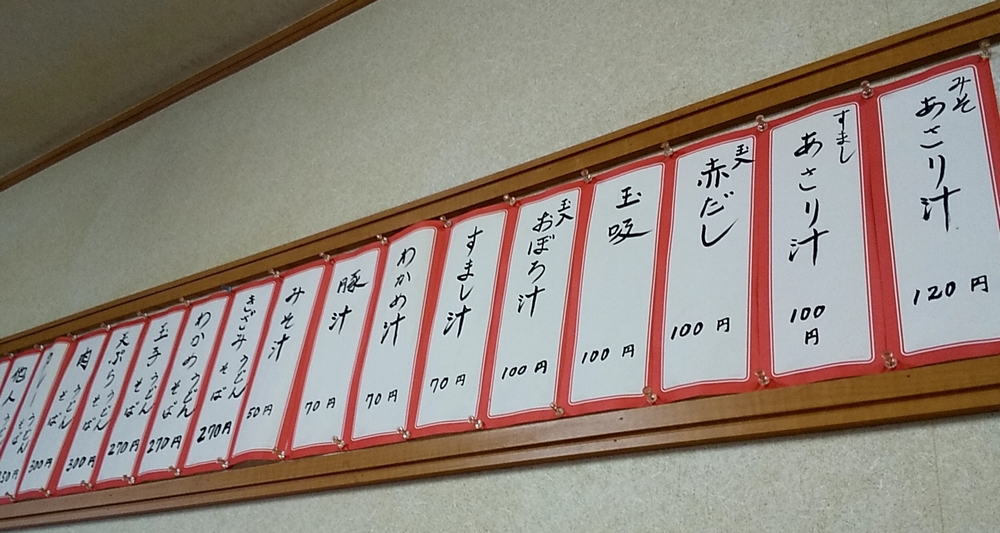 みそ
あさり汁
120円
すまし
あさり汁
100
円
玉入
赤だし
100円
玉吸
100円
玉入
おぼろ汁
100円
すまし汁
70円
わかめ汁
70円
豚汁
70円
みそ汁
50円
きざみうどん
そば
270円
わかめうどん
そば
270円
玉子うどん
そば
270円
天ぷらうどん
そば
300円
肉うどん
そば
300円
カレーうどん
そば
他人うどん
そば